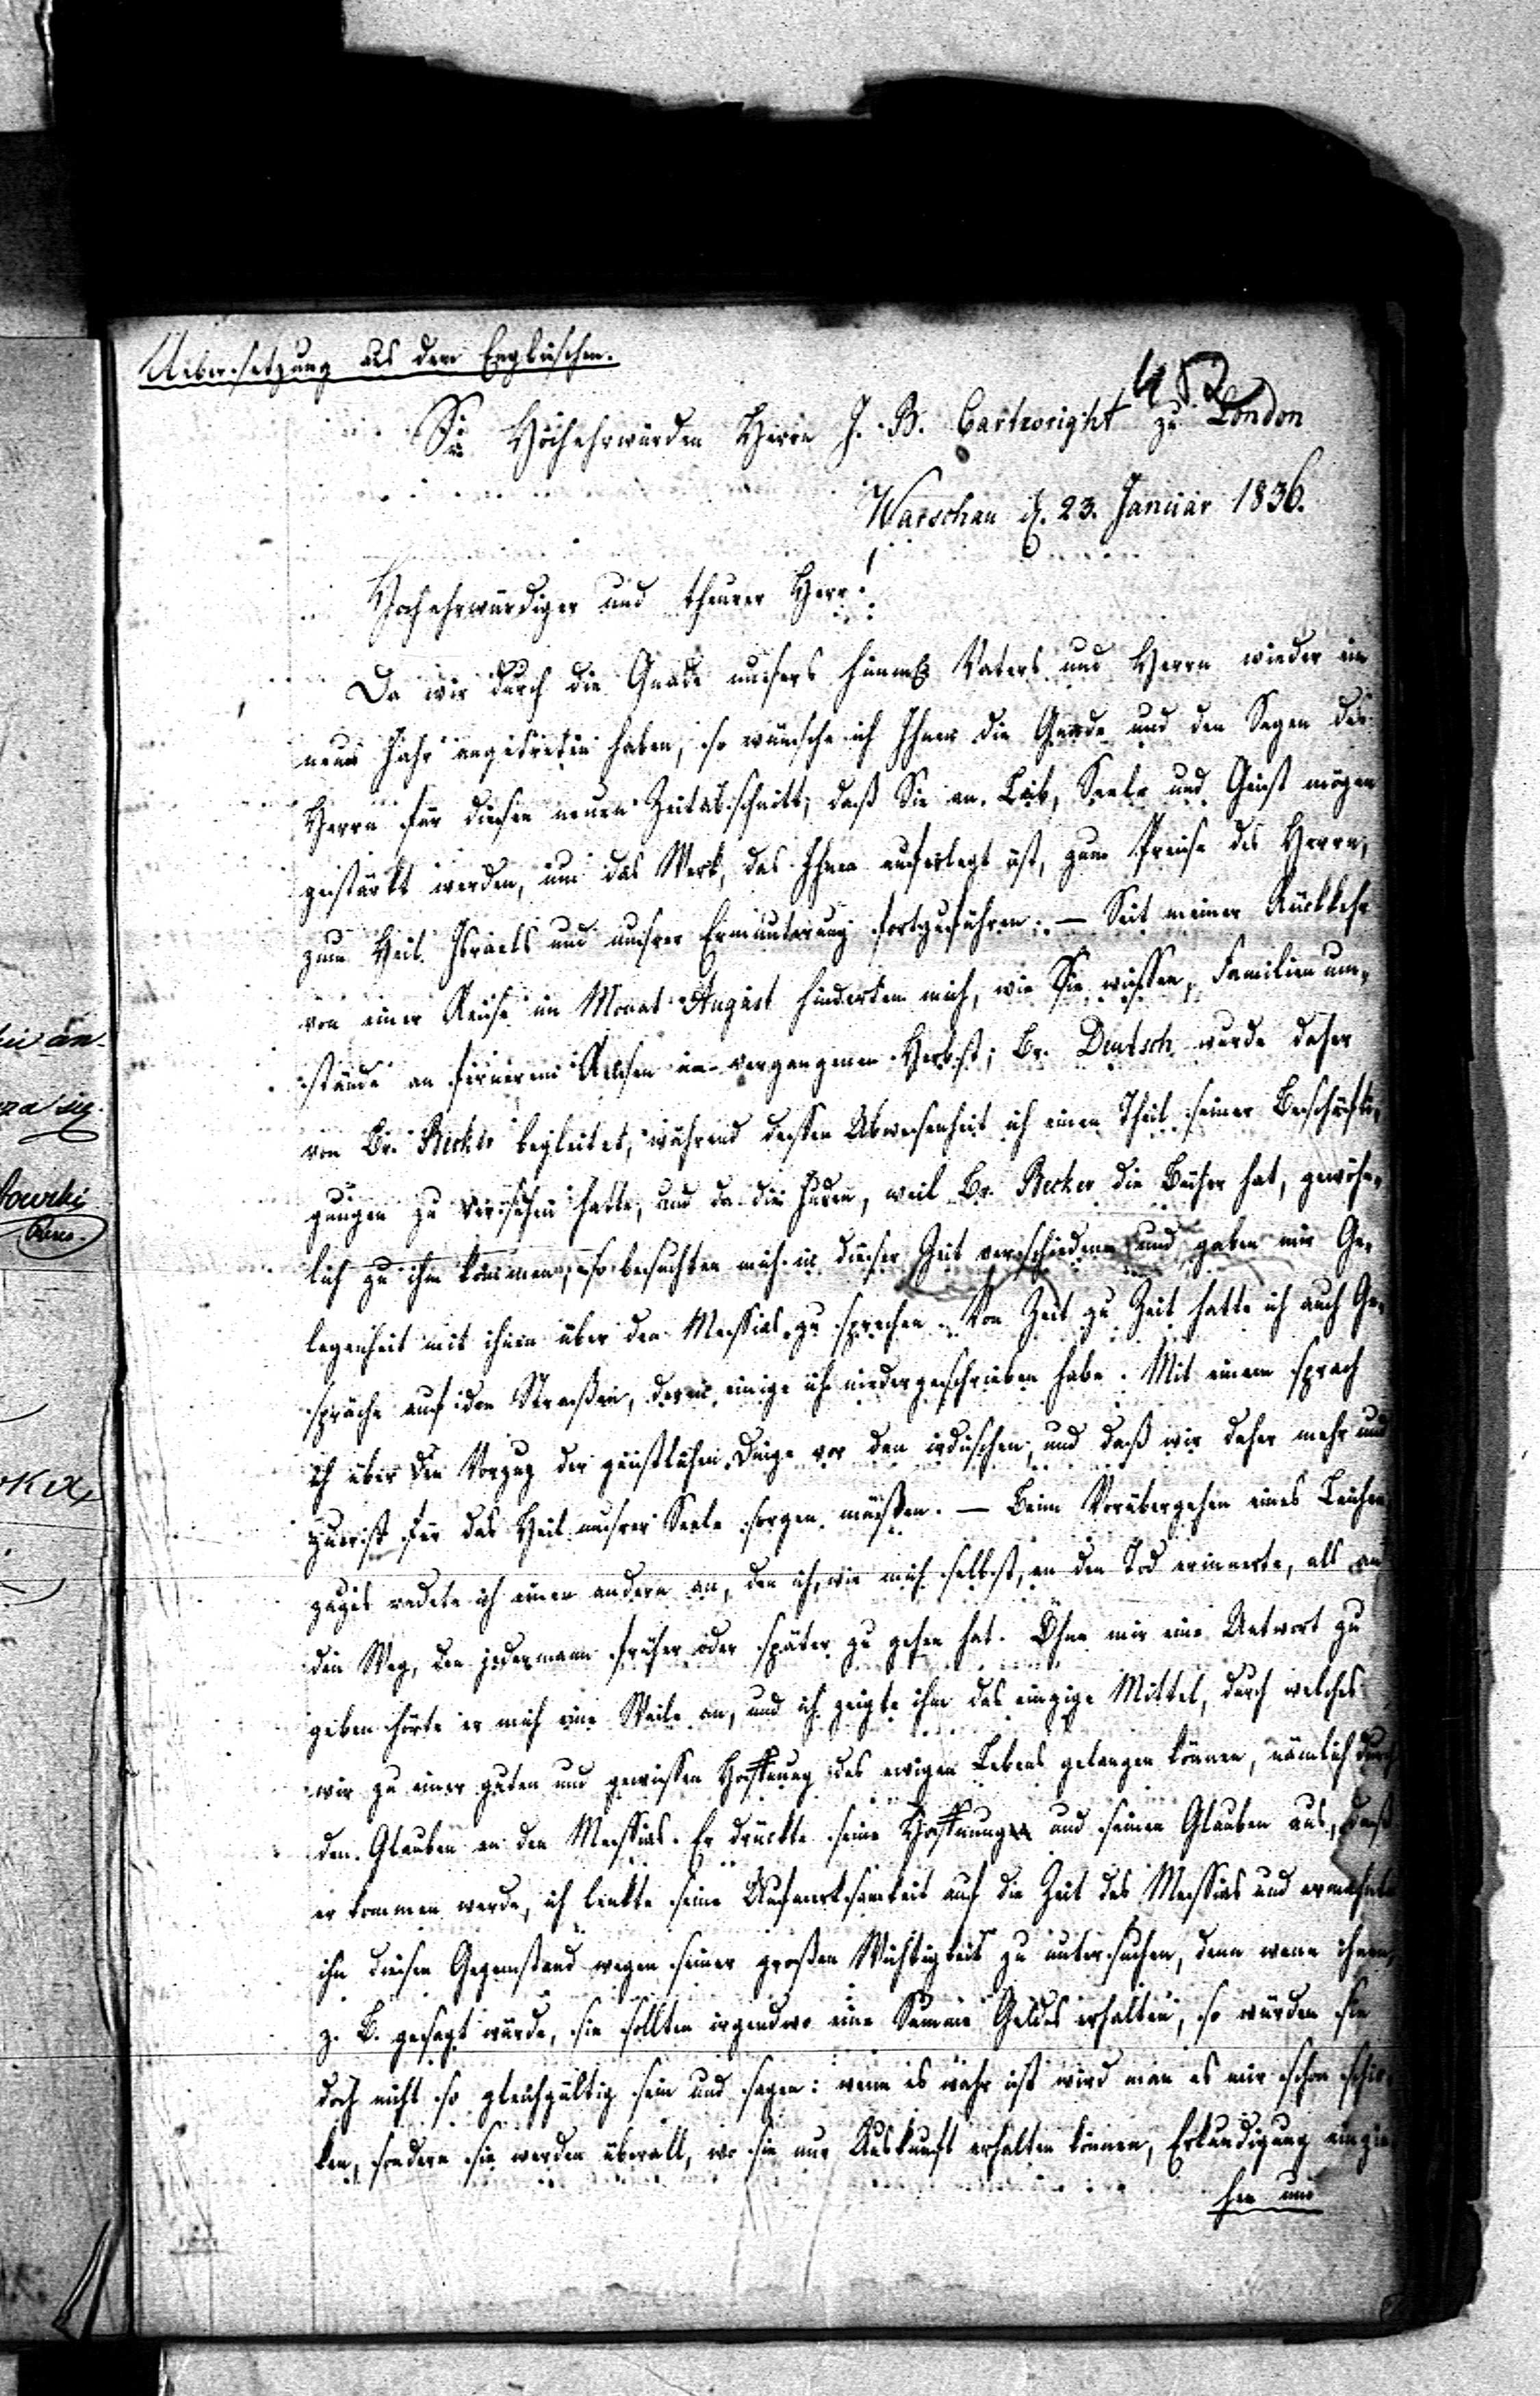 Uibersetzung aus dem Englischen.
45
Sr Hochehrwürden Herrn J. B. Cartwright zu London
Warschau d. 23. Januar 1836.
Hochehrwürdiger und theurer Herr!
Da wir durch die Gnade unsers himml. Vaters und Herrn wieder ein
neues Jahr angetreten haben, so wünsche ich Ihnen die Gnade und den Segen des
Herrn für diesen neuen Zeitabschnitt, daß Sie an Leib, Seele und Geist mögen
gestärkt werden, um das Werk, das Ihnen auferlegt ist, zum Preise des Herrn,
zum Heil Israels und unsrer Ermunterung fortzuführen. — Seit meiner Rückkehr
von einer Reise im Monat August hinderten mich, wie Sie wissen, Familienum-
stände an fernerem Reisen im vergangenen Herbst; Br. Deutsch wurde daher
von Br. Becker begleitet, während dessen Abwesenheit ich einen Theil seiner Beschäfti-
gungen zu versehen hatte, und da die Juden, weil Br. Becker die Bücher hat, gewöhn-
lich zu ihm kommen, so besuchten mich in dieser Zeit verschiedene und gaben mir Ge-
legenheit mit ihnen über den Messias zu sprechen. Von Zeit zu Zeit hatte ich auch Ge-
spräche auf den Straßen, deren einige ich niedergeschrieben habe. Mit einem sprach
ich über den Vorzug der geistlichen Dinge vor den irdischen, und daß wir daher mehr und
zuerst für das Heil unsrer Seele sorgen müssen. — Beim Vorübergehen eines Leichen-
zuges redete ich einen andern an, den ich, wie mich selbst, an den Tod erinnerte, als an
den Weg, den jedermann früher oder später zu gehen hat. Ohne mir eine Antwort zu
geben hörte er mich eine Weile an, und ich zeigte ihm das einzige Mittel, durch welches
wir zu einer guten und gewissen Hoffnung des ewigen Lebens gelangen können, nämlich durch
den Glauben an den Messias. Er drückte seine Hoffnung und seinen Glauben aus, daß
er kommen werde, ich lenkte seine Aufmerksamkeit auf die Zeit des Messias und ermahnte
ihn diesen Gegenstand wegen seiner großen Wichtigkeit zu untersuchen, denn wenn ihnen,
z. B. gesagt würde, sie sollten irgendwo eine Summe Geldes erhalten, so würden sie
doch nicht so gleichgültig sein und sagen: wenn es wahr ist wird man es mir schon schi-
ken, sondern sie werden überall, wo sie nur Auskunft erhalten können, Erkundigung einzie-
hen und